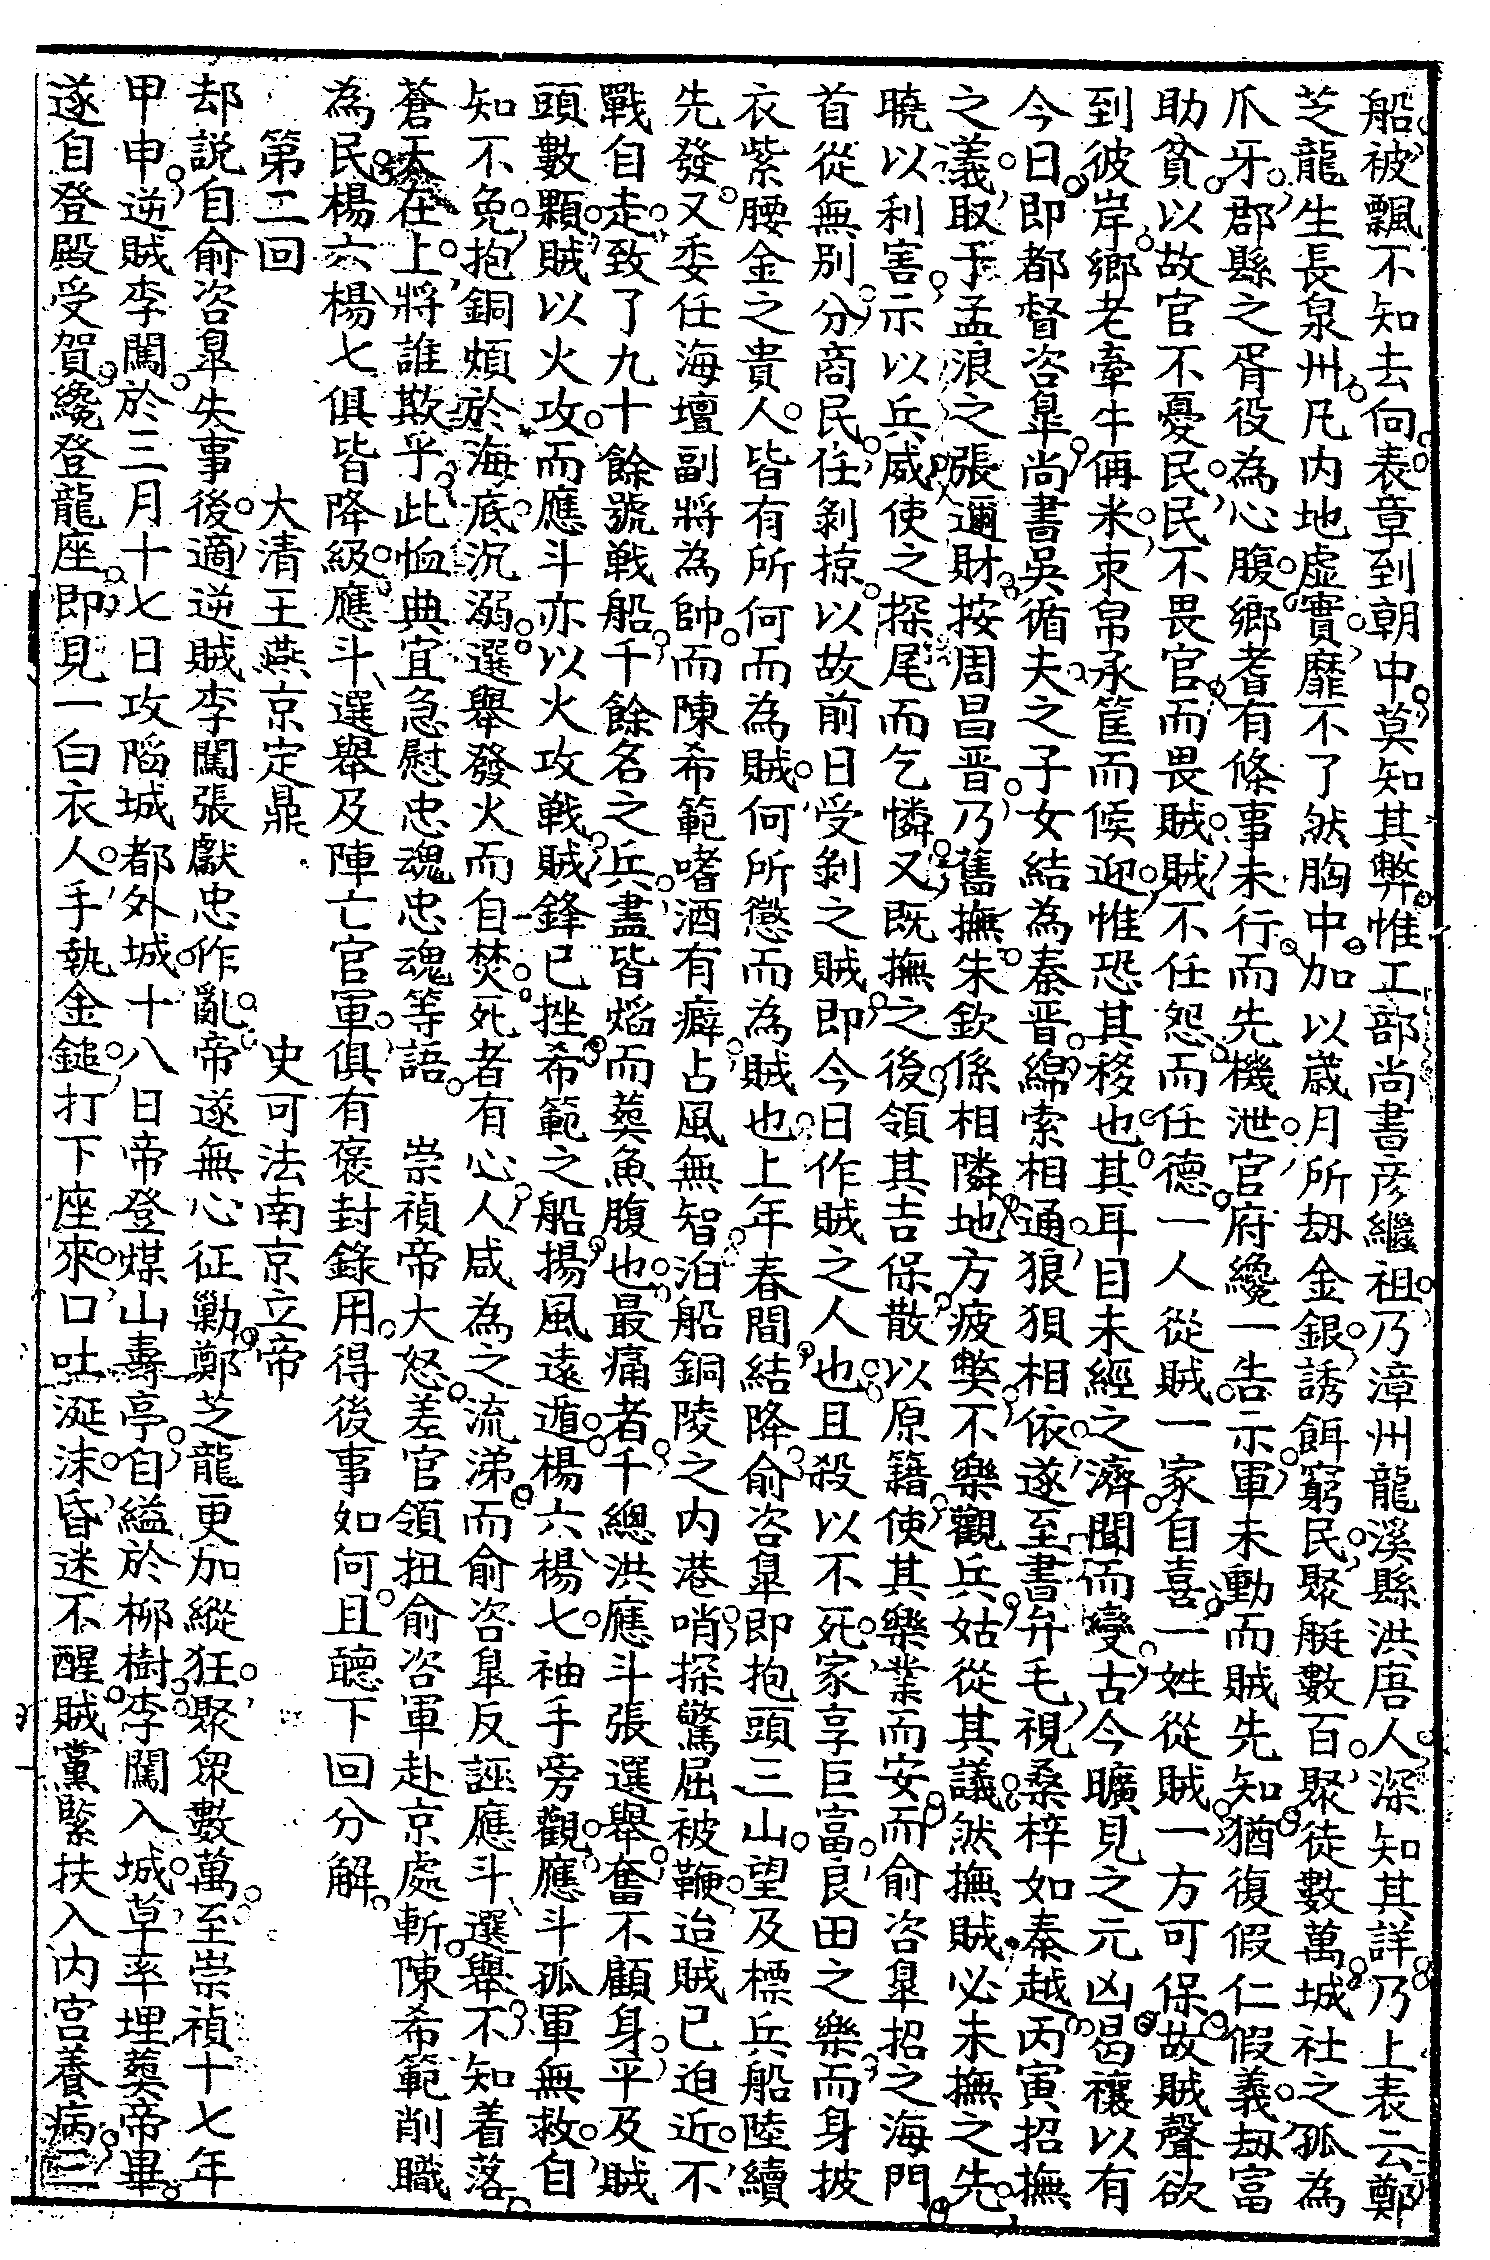 船被飄不知去向表章到朝中莫知其弊惟工部尚書彦繼祖乃漳州龍溪縣洪唐人深知其詳乃上表云鄭
芝龍生長泉州凡内地虚實靡不了然胸中加以歲月所刧金銀誘餌窮民聚艇數百聚徒數萬城社之孤為
爪牙郡縣之胥役為心腹鄉耆有條事未行而先機泄官府纔一告示軍未動而賊先知猶復假仁假義刧富
助貧以故官不憂民民不畏官而畏賊賊不任怨而任德一人從賊一家自喜一姓從賊一方可保故賊聲欲
到彼岸鄉老牽牛倆米束帛承筐而候迎惟恐其移也其耳目未經之濟聞而變古今曠見之元凶曷禳以有
今日即都督咨皐尚書吳循夫之子女結為秦晋綿索相通狼狽相依遂至書弁毛視桑梓如秦越丙寅招撫
之義取乎孟浪之張邇財按周昌晋乃舊撫朱欽係相隣地方疲弊不樂觀兵姑從其議然撫賊必未撫之先
曉以利害示以兵威使之探尾而乞憐又既撫之後領其吉保散以原籍使其樂業而安而俞咨皐招之海門
首從無別分商民任剝掠以故前日受剝之賊即今日作賊之人也且殺以不死家享巨富艮田之樂而身披
衣紫腰金之貴人皆有所何而為賊何所懲而為賊也上年春間結降俞咨皐即抱頭三山望及標兵船陸續
先發又委任海壇副將為帥而陳希範嗜酒有癖占風無智泊船銅陵之内港哨探驚屈被鞭迨賊已迫近不
戰自走致了九十餘號戰船千餘名之兵盡皆熖而葬魚腹也最痛者千總洪應斗張選舉奮不顧身乎及賊
頭數顆賊以火攻而應斗亦以火攻戰賊鋒已挫希範之船揚風遠遁楊六楊七袖手旁觀應斗孤軍無救自
知不免抱銅煩於海底沉溺選舉發火而自焚死者有心人咸為之流涕而俞咨皐反誣應斗選舉不知着落
蒼天在上將誰欺乎此恤典宜急慰忠魂忠魂等語　崇禎帝大怒差官領扭俞咨軍赴京處斬陳希範削職
為民楊六楊七俱皆降級應斗選舉及陣亡官軍俱有褒封錄用得後事如何且聽下回分解
第二回　　　大清王燕京定鼎　　　史可法南京立帝
却説自俞咨皐失事後適逆賊李闖張獻忠作亂帝遂無心征勦鄭芝龍更加縱狂聚衆數萬至崇禎十七年
甲申逆賊李闖於三月十七日攻陷城都外城十八日帝登煤山壽亭自縊於柳樹李闖入城草率埋葬帝畢
遂自登殿受賀纔登龍座即見一白衣人手執金鎚打下座來口吐涎沫昏迷不醒賊黨緊扶入内宮養病三